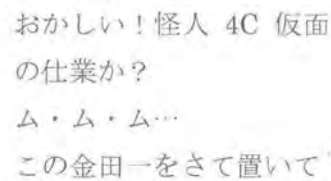 おかしい！怪人 4C 仮面
の仕業か？
ム・ム・ム…
この金田一をさて置いて